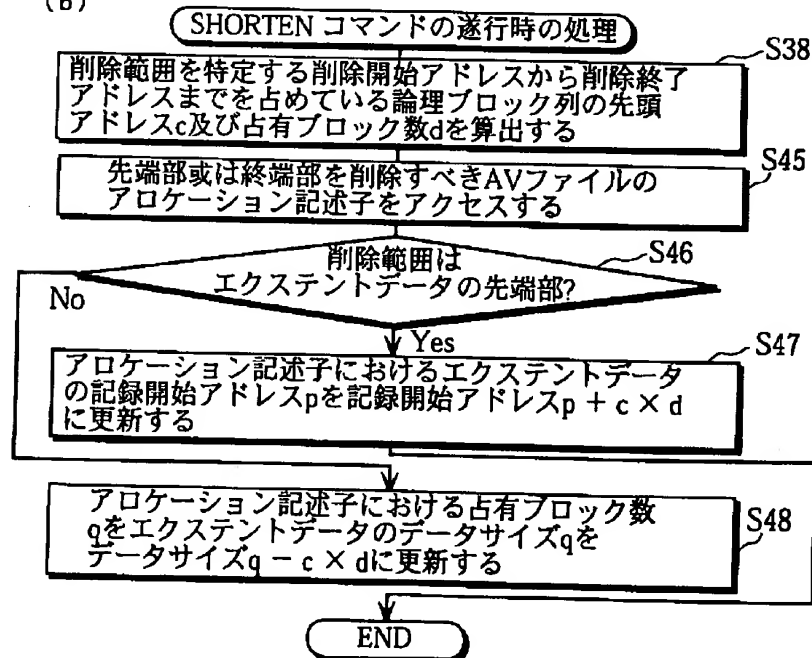 (b)
SHORTEN コマンドの遂行時の処理
S38
削除範囲を特定する削除開始アドレスから削除終了
アドレスまでを占めている論理ブロック列の先頭
アドレスc及び占有ブロック数dを算出する
S45
先端部或は終端部を削除すべきAVファイルの
アロケーション記述子をアクセスする
S46
削除範囲は
エクステントデータの先端部?
No
Yes
S47
アロケーション記述子におけるエクステントデータ
の記録開始アドレスpを記録開始アドレスp + c × d
に更新する
アロケーション記述子における占有ブロック数
qをエクステントデータのデータサイズqを
データサイズq − c × dに更新する
S48
END